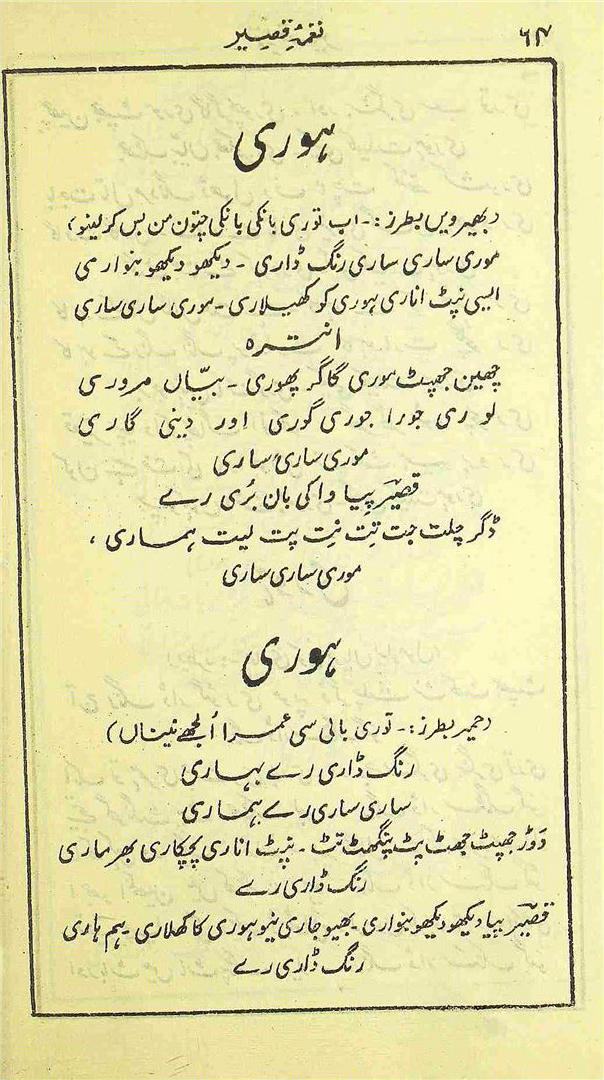 ۶۴
نغمۂ قصیر
ہوری
(بھیرویں بطرز:۔ اب توری بانکی بانکی چتون من بس کر لینو)
موری ساری ساری رنگ ڈاری ۔ دیکھو دیکھو بنواری
ایسی نپٹ اناری ہوری کو کھیلاری ۔ موری ساری ساری
انترہ
چھین جھپٹ موری گاگر پھوری ۔ بیّاں مروری
لوری جورا جوری گوری اور دینی گاری
موری ساری ساری
قصیرؔ پیا واکی بان بُری رے
ڈگر چلت جت تِت نِت پت لیت ہماری ،
موری ساری ساری
ہوری
(حمیر بطرز:۔ توری بالی سی عمرا اُلجھے نیناں)
رنگ ڈاری رے بہاری
ساری ساری رے ہماری
دَوڑ جھپٹ جھٹ پٹ پنگھٹ تٹ ۔ نپٹ اناری پچکاری بھر ماری
رنگ ڈاری رے
قصیرؔ پیا دیکھو دیکھو بنواری ۔ بھیو جاری نیو ہوری کا کھلاری ۔ ہم ہاری
رنگ ڈاری رے